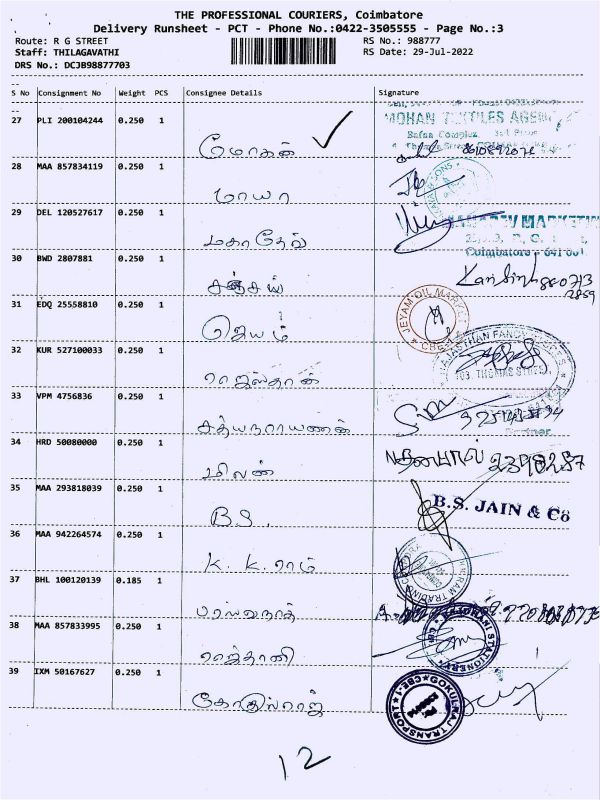 THE PROFESSIONAL COURIERS, Coimbatore
Delivery Runsheet - PCT - Phone No.:0422-3505555 - Page No.:3
Route: R G STREET
RS No.: 988777
Staff: THILAGAVATHI
RS Date: 29-Jul-2022
DRS No.: DCJB98877703
S No Consignment No Weight PCS Consignee Details Signature
27 PLI 200104244 0.250 1
MOHAN TEXTILES AGENCY
மோகன்
28 MAA 857834119 0.250 1
மாயா
29 DEL 120527617 0.250 1
மகாதேவ்
MAHADEV MARKETIN
Coimbatore - 641 001
30 BWD 2807881 0.250 1
சஞ்சய்
31 EDQ 25558810 0.250 1
ஜெயம்
JEYAM OIL
32 KUR 527100033 0.250 1
ராஜஸ்தான்
RAJASTHAN FANCY
103, THOMAS STREET
33 VPM 4756836 0.250 1
சத்யநாராயணன்
34 HRD 50080000 0.250 1
மிலன்
2398287
35 MAA 293818039 0.250 1
B.S.
B.S. JAIN & Co
36 MAA 942264574 0.250 1
K. K. ராம்
37 BHL 100120139 0.185 1
38 MAA 857833995 0.250 1
ராஜ்தானி
RAJDHANI STATIONERY
39 IXM 50167627 0.250 1
கோகுல்ராஜ்
GOKULRAJ TRANSPORT CBE-1
12